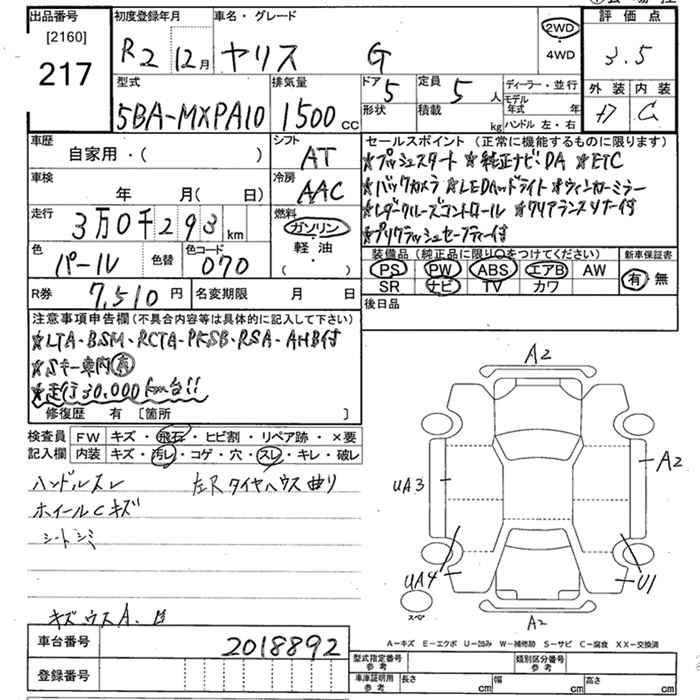 出品番号 初度登録年月 車名・グレード 2WD ・ 4WD 評価点
[2160]
217 R2 12月 ヤリス G 3.5
型式 排気量 ドア 定員 ディーラー・並行 外装 内装
5BA-MXPA10 1500 CC 5 5 人 モデル年式 年
形状 積載 kg ハンドル 左・右 C
車歴 シフト セールスポイント(正常に機能するものに限ります)
自家用・( ) AT ★プッシュスタート ★純正ナビ・DA ★ETC
車検 冷房 ★バックカメラ ★LEDヘッドライト ★ウィンカーミラー
年 月( 日) AAC ★レーダークルーズコントロール ★クリアランスソナー付
走行 3万0千293 km 燃料 ガソリン ★プリクラッシュセーフティー付
・ 軽油 ・ ( ) 装備品(純正品に限り○をつけてください) 新車保証書
色 パール 色替 色コード 070 PS PW ABS エアB AW 有・無
SR ナビ TV カワ
R券 7,510 円 名変期限 月 日 後日品
注意事項申告欄(不具合内容等は具体的に記入して下さい)
★LTA・BSM・RCTA・PKSB・RSA・AHB付
★Sキー車内有
★走行30,000km台!!
修復歴 有 〔箇所 〕
検査員 FW キズ・飛石・ヒビ割・リペア跡・×要
記入欄 内装 キズ・汚レ・コゲ・穴・スレ・キレ・破レ
ハンドルスレ 左R タイヤハウス曲り
ホイールCキズ
シートシミ
キズ ウスA.
A2
A2
UA3
UA4
U1
スペア
A2
A-キズ E-エクボ U-凹み W-補修跡 S-サビ C-腐食 XX-交換済
車台番号 2018892
登録番号
型式指定番号 参考 類別区分番号 参考
車庫証明用 参考 長さ cm 幅 cm 高さ cm